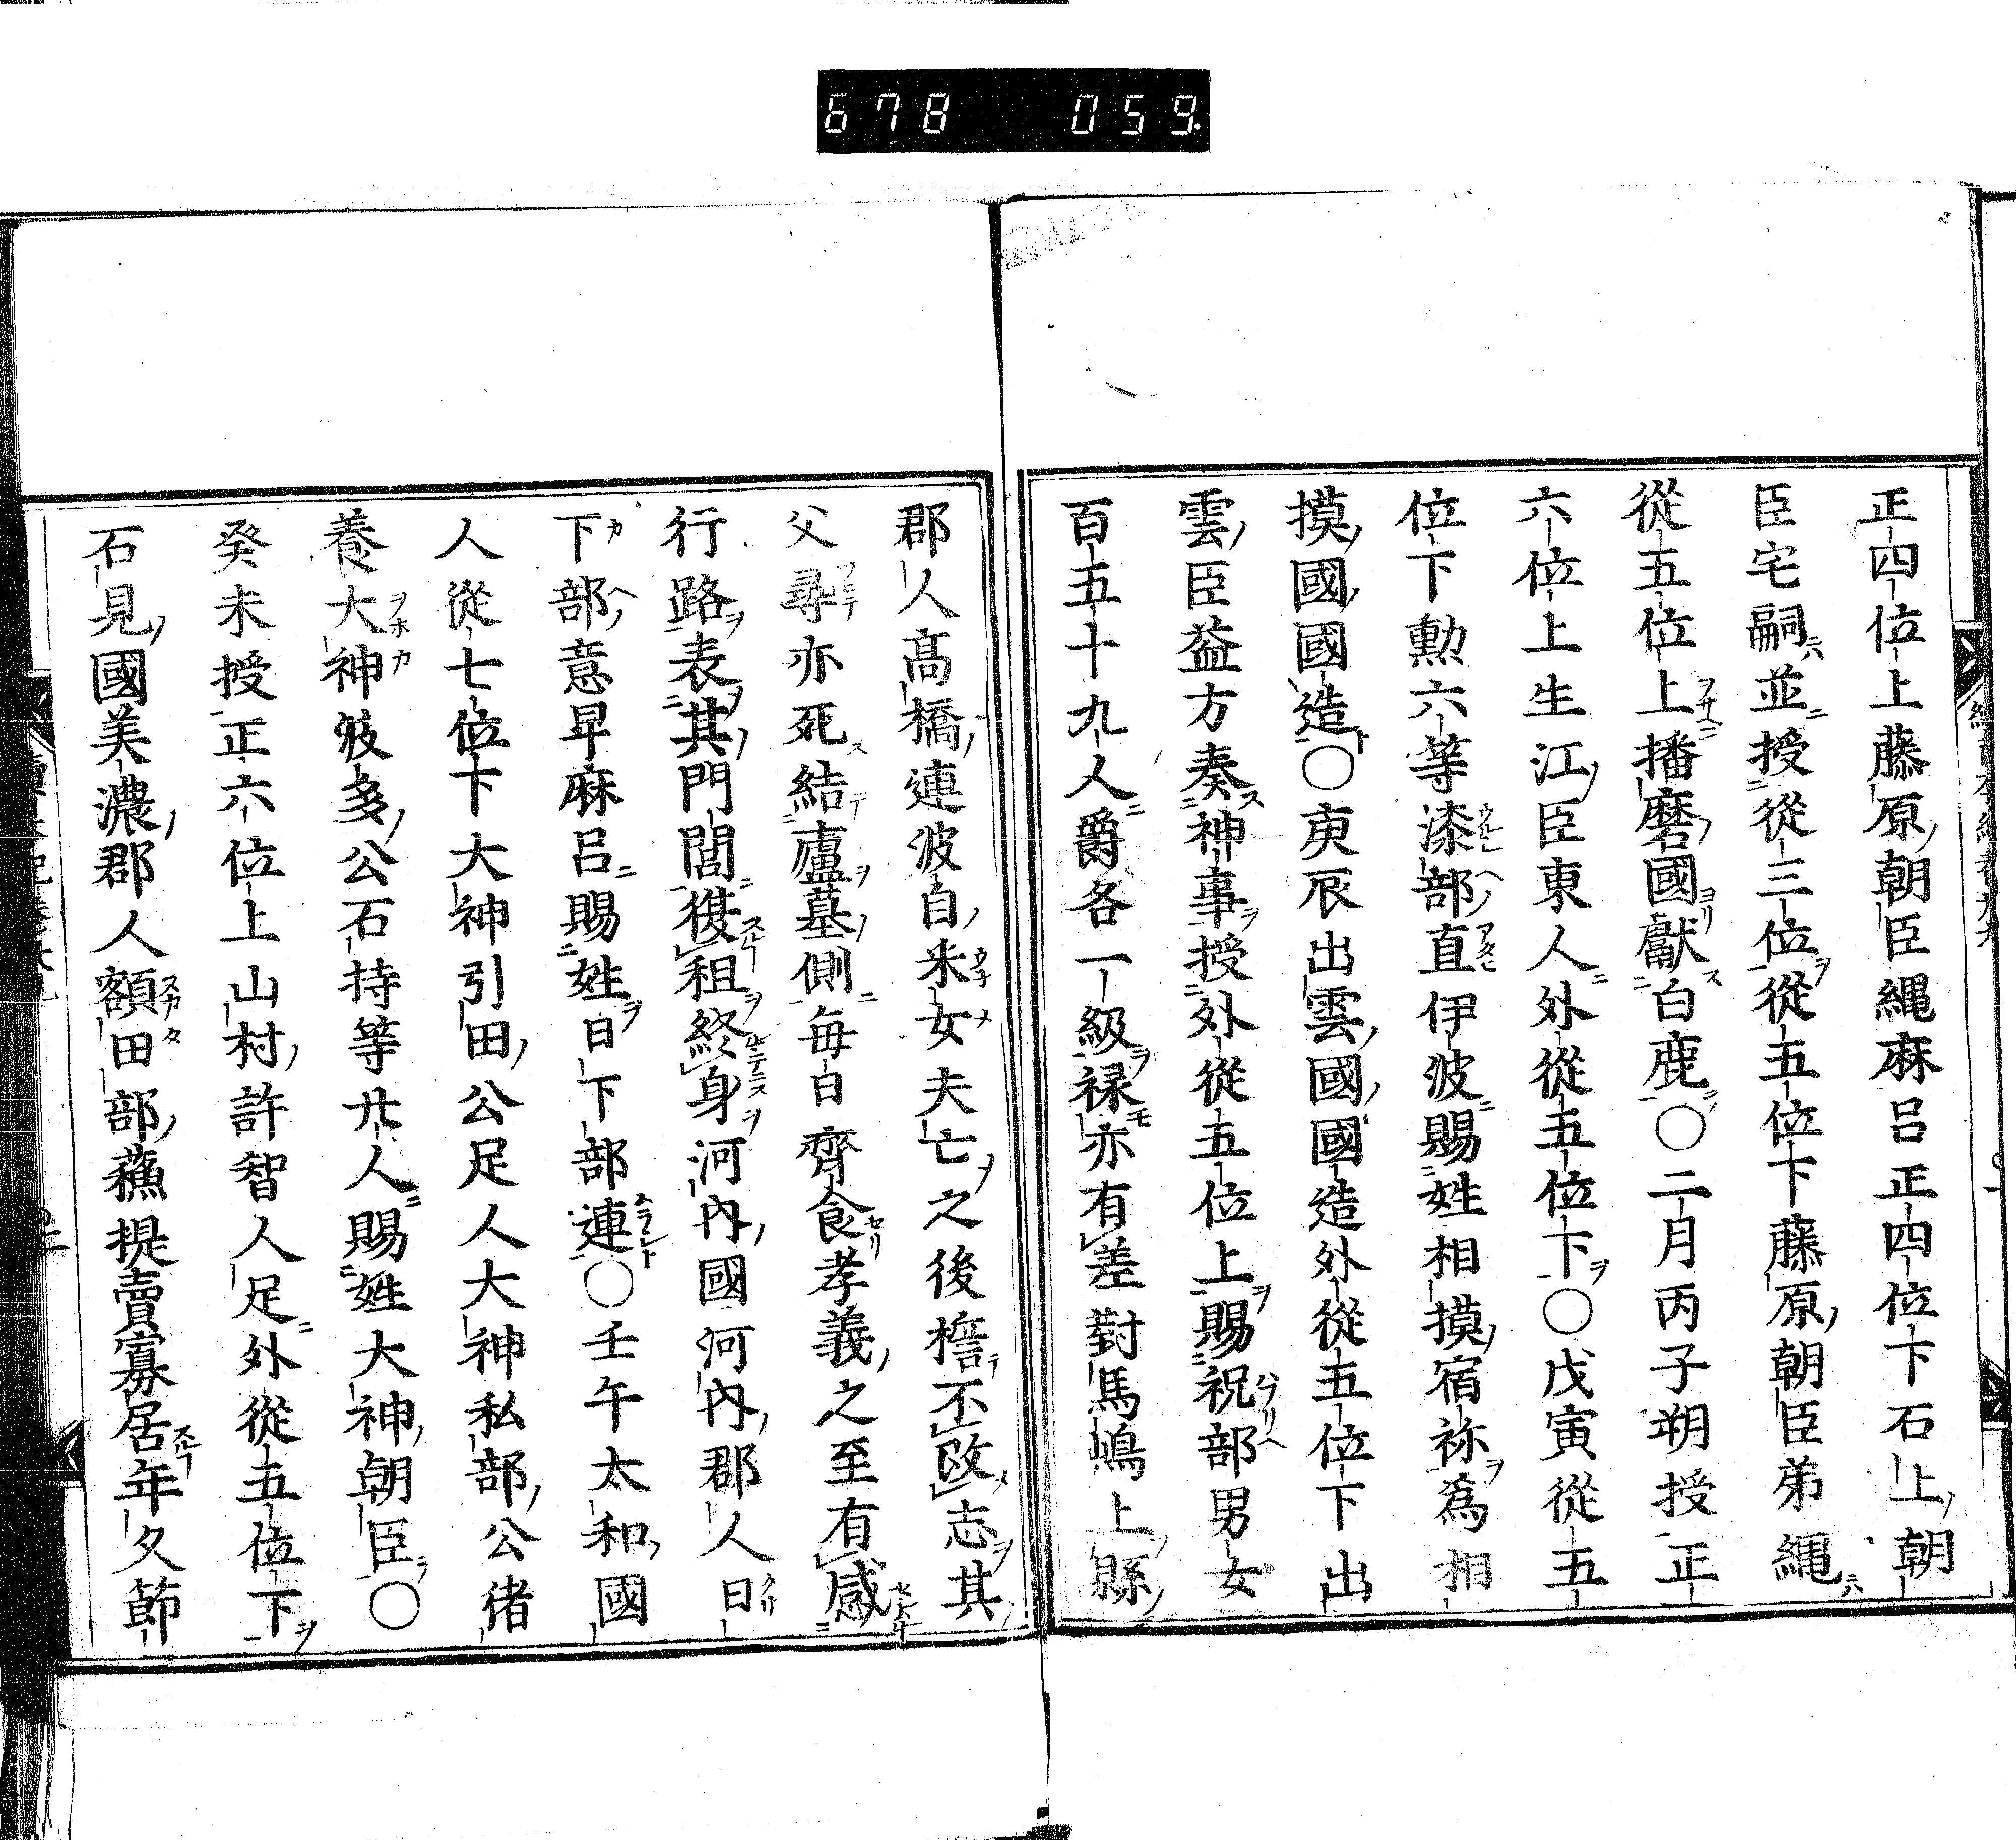 678 059
正四位上藤原朝臣繩麻呂正四位下石上朝
臣宅嗣並授從三位從五位下藤原朝臣弟繩
從五位上播磨國獻白鹿〇二月丙子朔授正
六位上生江臣東人外從五位下〇戊寅從五
位下勲六等漆部直伊波賜姓相摸宿祢為相
摸國國造〇庚辰出雲國國造外從五位下出
雲臣益方奏神事授外從五位上賜祝部男女
百五十九人爵各一級禄亦有差對馬嶋上縣
郡人髙橋連波自米女夫亡之後誓不改志其
父尋亦死結廬墓側毎日齊食孝義之至有感
行路表其門閭復租終身河内國河内郡人日
下部意卑麻呂賜姓日下部連〇壬午太和國
人從七位下大神引田公足人大神私部公猪
養大神波多公石持等廿人賜姓大神朝臣〇
癸未授正六位上山村許智人足外從五位下
石見國美濃郡人額田部蘓提賣寡居年久節